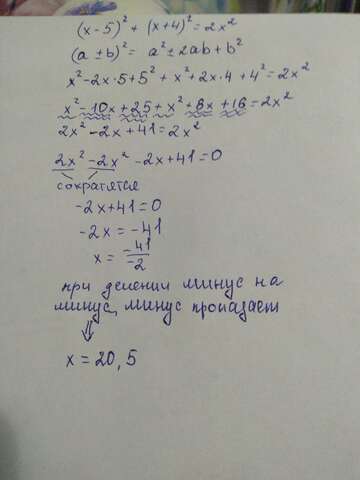 (x-5)² + (x+4)² = 2x²
(a ± b)² = a² ± 2ab + b²
x² - 2x·5 + 5² + x² + 2x·4 + 4² = 2x²
x² - 10x + 25 + x² + 8x + 16 = 2x²
2x² - 2x + 41 = 2x²
2x² - 2x² - 2x + 41 = 0
сократятся
-2x + 41 = 0
-2x = -41
x = -41/-2
при делении минус на
минус, минус пропадает
⇓
x = 20,5